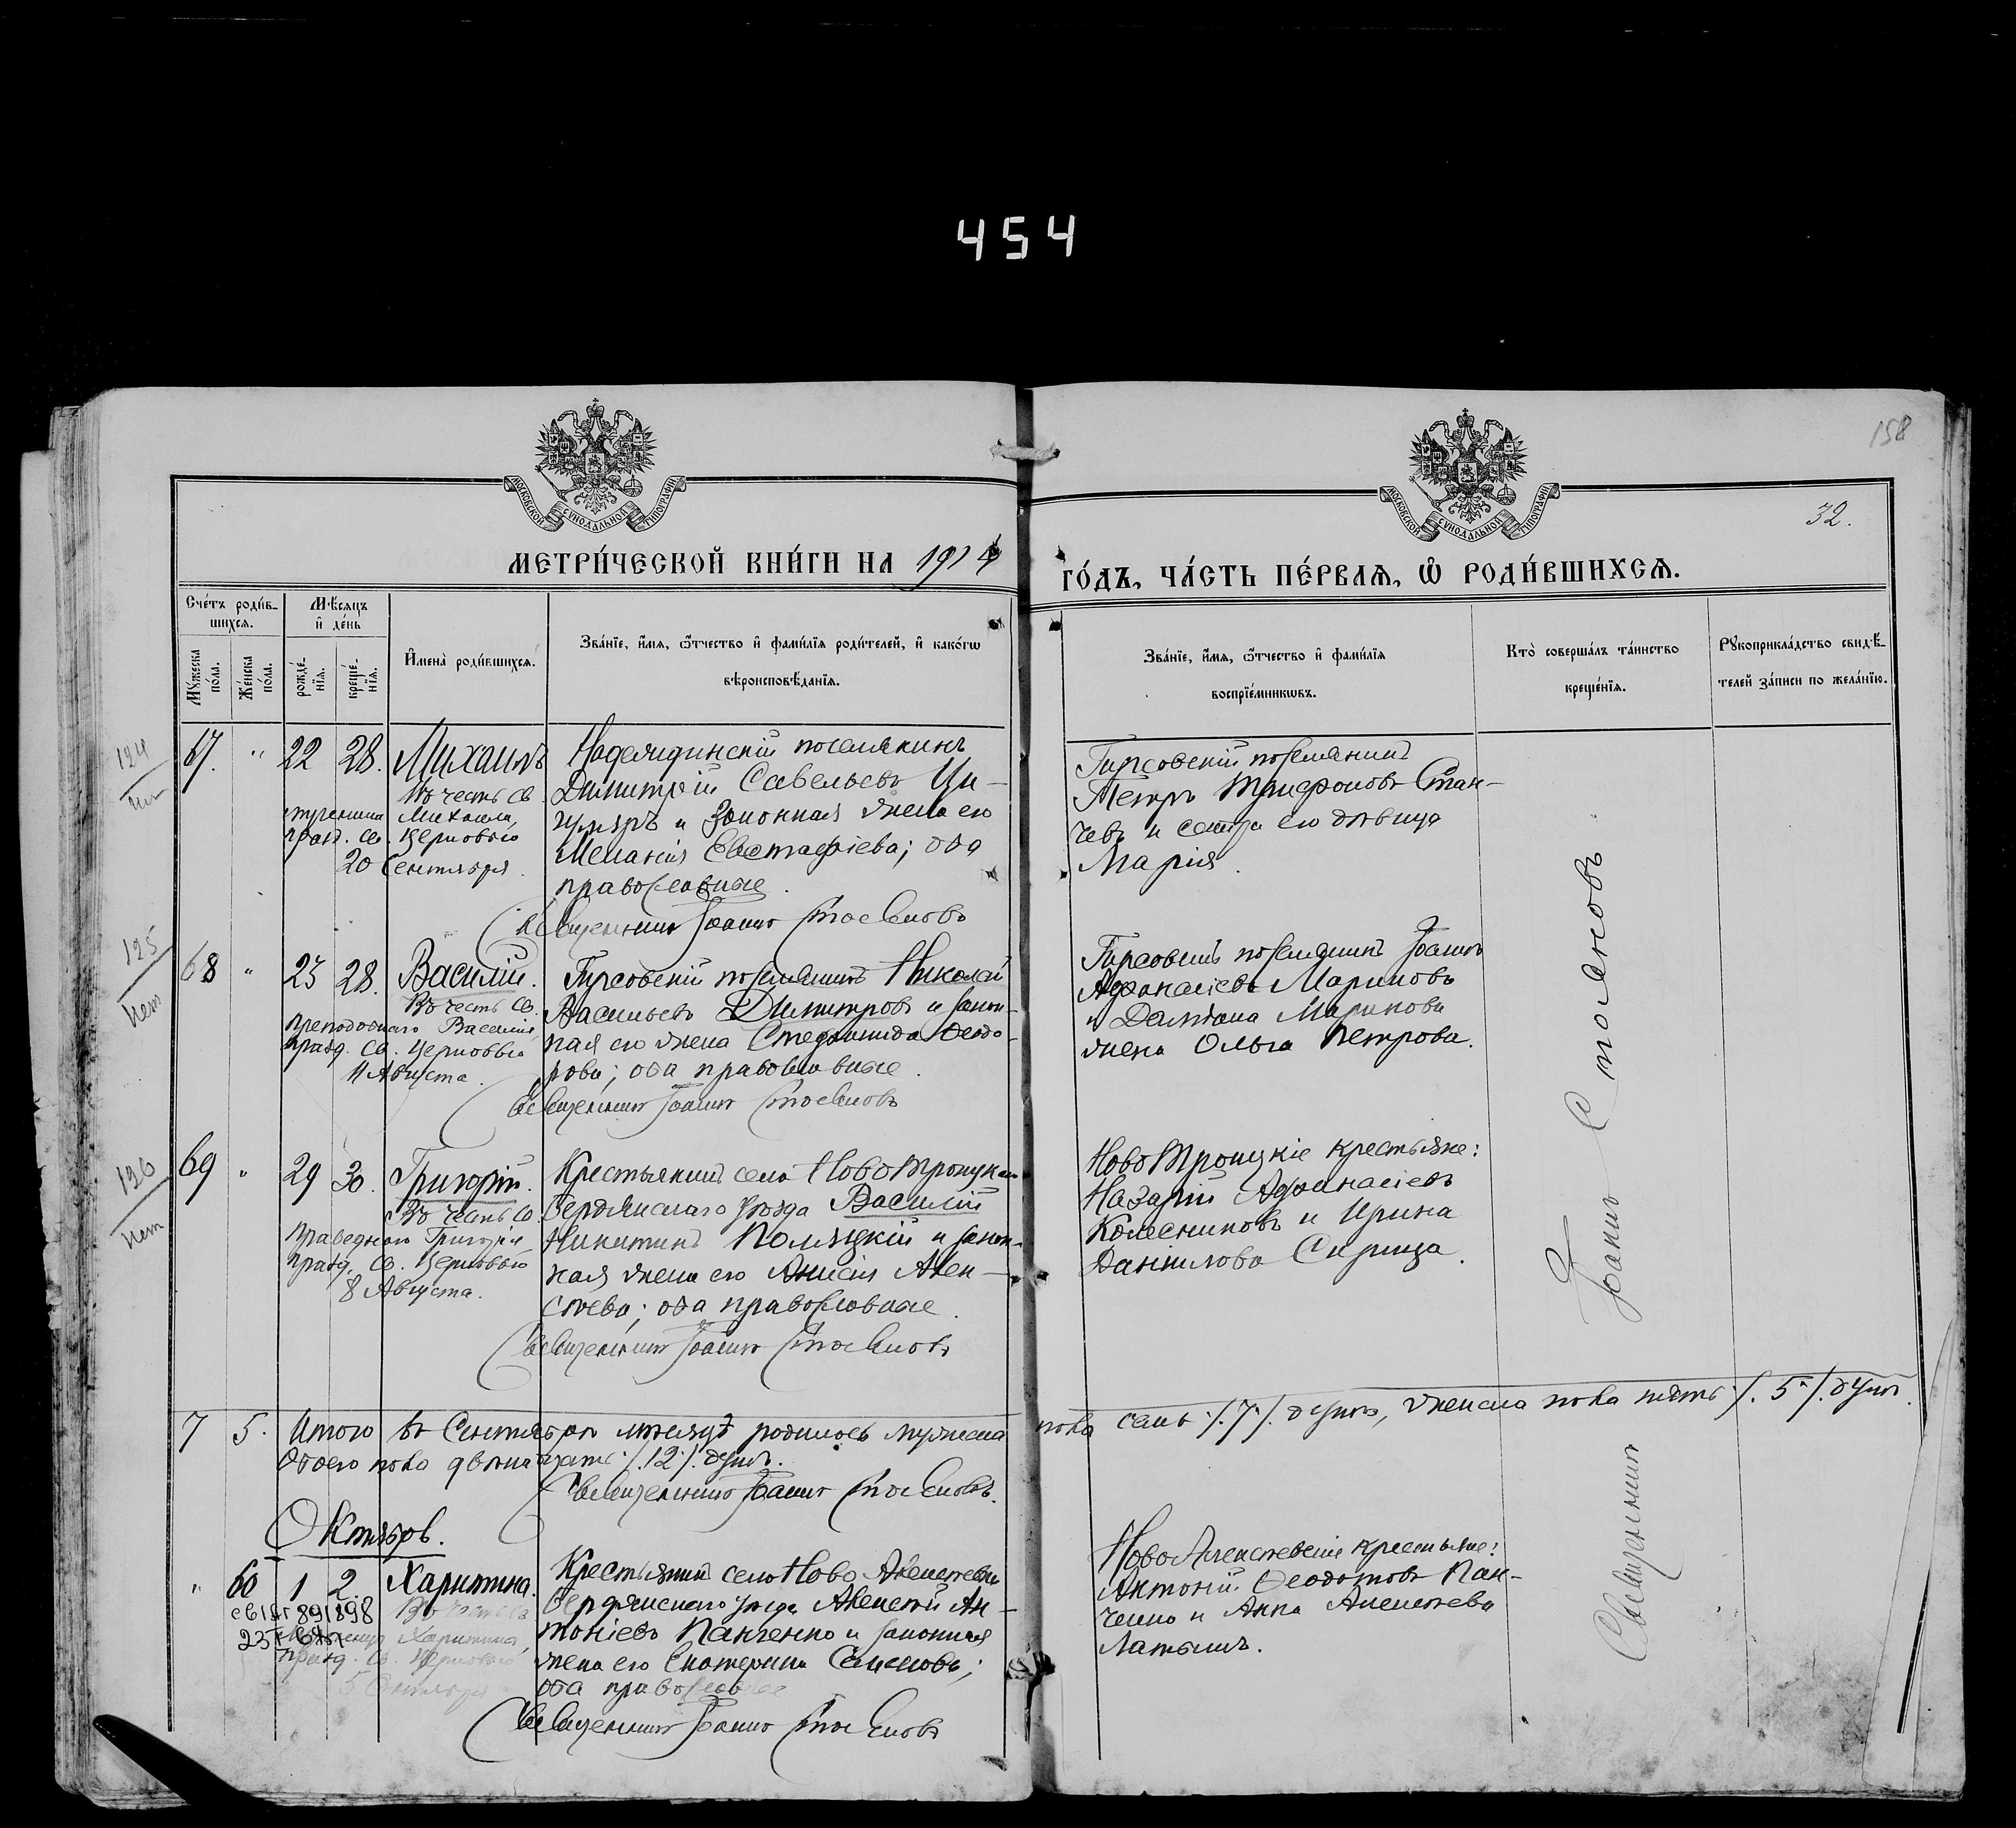 454
158
32.
МОСКОВСКОЙ СѴНОДАЛЬНОЙ ТИПОГРАФІИ
МОСКОВСКОЙ СѴНОДАЛЬНОЙ ТИПОГРАФІИ
МЕТРИ́ЧЕСКОЙ КНИ́ГИ НА 1914 ГО́ДЪ, ЧА́СТЬ ПЕ́РВАѦ, Ѡ҆ РОДИ́ВШИХСѦ.
Сче́тъ роди́в-
шихсѧ.
Мꙋ́жеска по́ла.
Же́нска по́ла.
Мѣ́сѧцъ
и҆ де́нь
рожде́-
нїѧ.
креще́-
нїѧ.
И҆мена̀ роди́вшихсѧ.
Зва́нїе, и҆́мѧ, ѻ҆́тчество и҆ фами́лїѧ роди́телей, и҆ како́гѡ
вѣроисповѣ́данїѧ.
Зва́нїе, и҆́мѧ, ѻ҆́тчество и҆ фами́лїѧ
воспрїе́мникѡвъ.
Кто̀ соверша́лъ та́инство
креще́нїѧ.
Рꙋкоприкла́дство свидѣ́-
телей за́писи по жела́нїю.
124
67. " 22 28. Михаилъ
Въ честь св.
Михаила,
празд. св. Церковью
20 Сентября.
поселянинъ
Димитрій Савельевъ Ци-
и законная жена его
Меланія Евстафіева; оба
православные.
Священникъ Іоаннъ Стояновъ
Гирсовскій поселянинъ
Петръ Трифоновъ Стан-
чевъ и сестра его дѣвица
Марія.
125
нет
68 " 23 28. Василій.
Въ честь св.
преподобнаго Василія,
празд. св. Церковью
11 Августа.
Гирсовскій поселянинъ Николай
Васильевъ Димитровъ и закон-
ная его жена Стефанида Ѳеодо-
рова; оба православные.
Священникъ Іоаннъ Стояновъ
Гирсовскій поселянинъ Іоаннъ
Афанасіевъ Мариновъ
и Даміана Маринова
жена Ольга Петрова.
126
нет
69 " 29 30. Григорій.
Въ честь св.
Праведнаго Григорія
празд. св. Церковью
8 Августа.
Крестьянинъ села НовоТроицкаго
Бердянскаго уѣзда Василій
Никитинъ и закон-
ная жена его Анисія Алек-
сѣева; оба православные.
Священникъ Іоаннъ Стояновъ
НовоТроицкіе крестьяне:
Назарій Афанасіевъ
Колесниковъ и Ирина
Данилова Скрипца.
7 5. Итого въ Сентябрѣ мѣсяцѣ родилось мужеска пола семь /.7./ душъ, женска пола пять /.5./ душъ.
Обоего пола двѣнадцать /.12./ душъ.
Священникъ Іоаннъ Стояновъ.
Октябрь.
" 60 1 2. Харитина.
Въ честь св.
Харитина,
празд. св. Церковью
5 Октября
Крестьянинъ села Ново Алексѣевки
Бердянскаго уѣзда Алексѣй Ан-
тоніевъ Панченко и законная
жена его Екатерина Семенова;
оба православные
Священникъ Іоаннъ Стояновъ
НовоАлексѣевскіе крестьяне:
Антоній Ѳеодотовъ Пан-
ченко и Анна Алексѣева
Латышъ.
Священникъ Іоаннъ Стояновъ